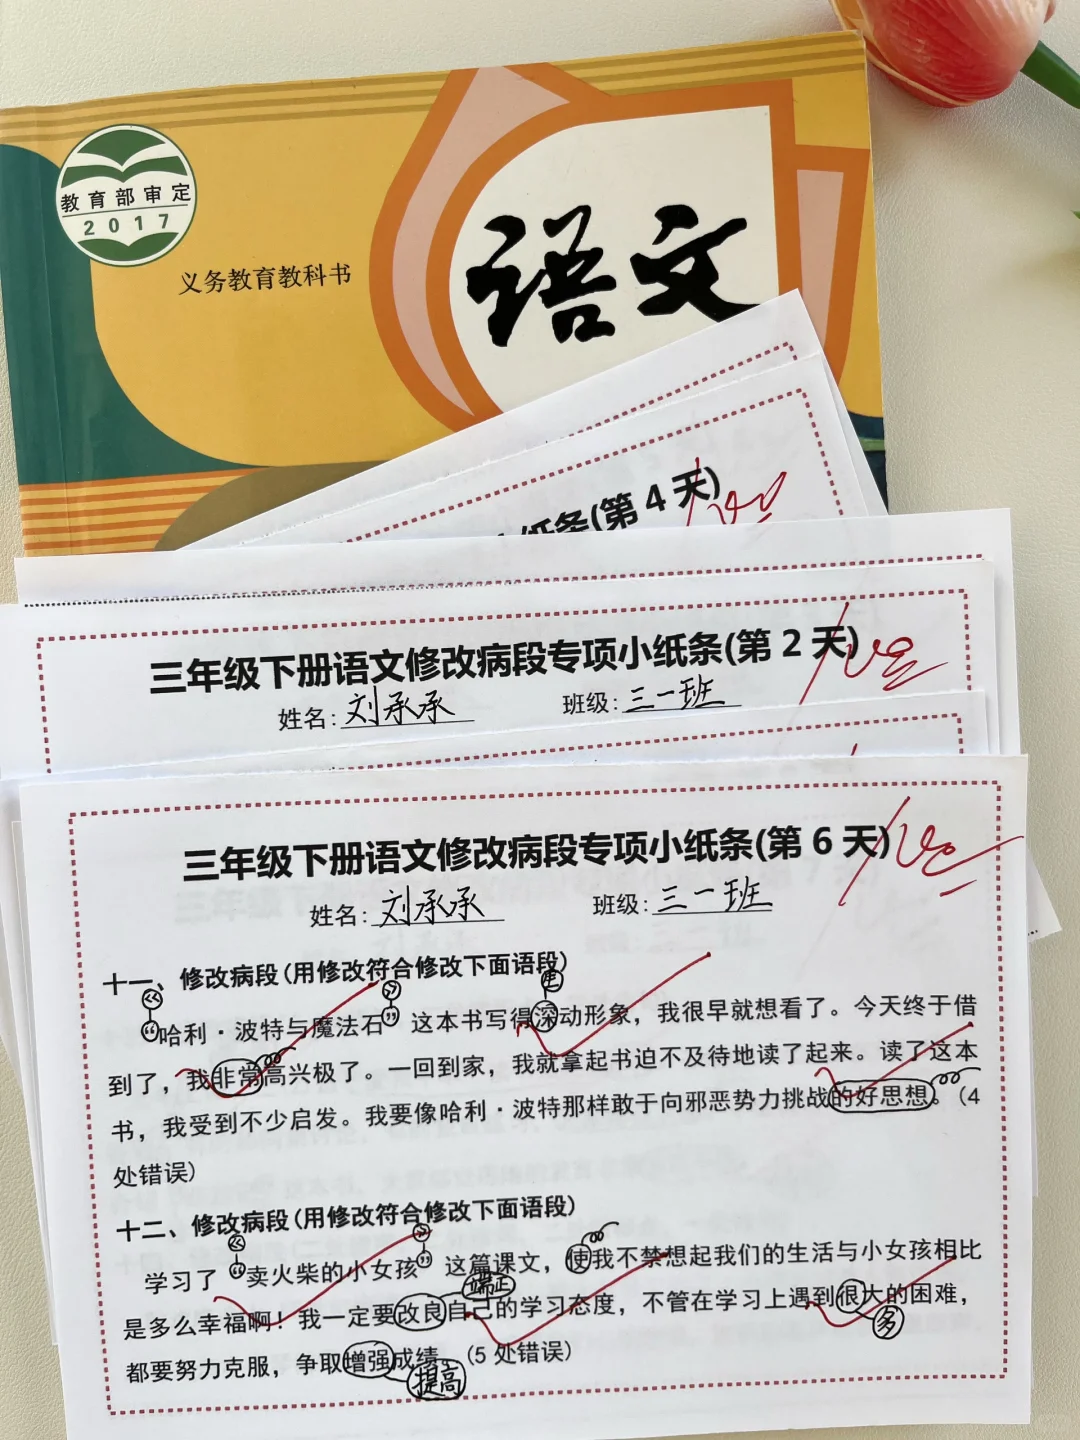 教育部审定
2017
义务教育教科书
语文
纸条(第4天)
三年级下册语文修改病段专项小纸条(第2天)
姓名:刘承承 班级:三一班
三年级下册语文修改病段专项小纸条(第6天)
姓名:刘承承 班级:三一班
十一、修改病段(用修改符合修改下面语段)
《 》 生
“哈利·波特与魔法石”这本书写得深动形象，我很早就想看了。今天终于借
到了，我非常高兴极了。一回到家，我就拿起书迫不及待地读了起来。读了这本
书，我受到不少启发。我要像哈利·波特那样敢于向邪恶势力挑战的好思想。(4
处错误)
十二、修改病段(用修改符合修改下面语段)
《 》
学习了“卖火柴的小女孩”这篇课文，使我不禁想起我们的生活与小女孩相比
端正
是多么幸福啊！我一定要改良自己的学习态度，不管在学习上遇到很大的困难，
多
都要努力克服，争取增强成绩。(5处错误)
提高